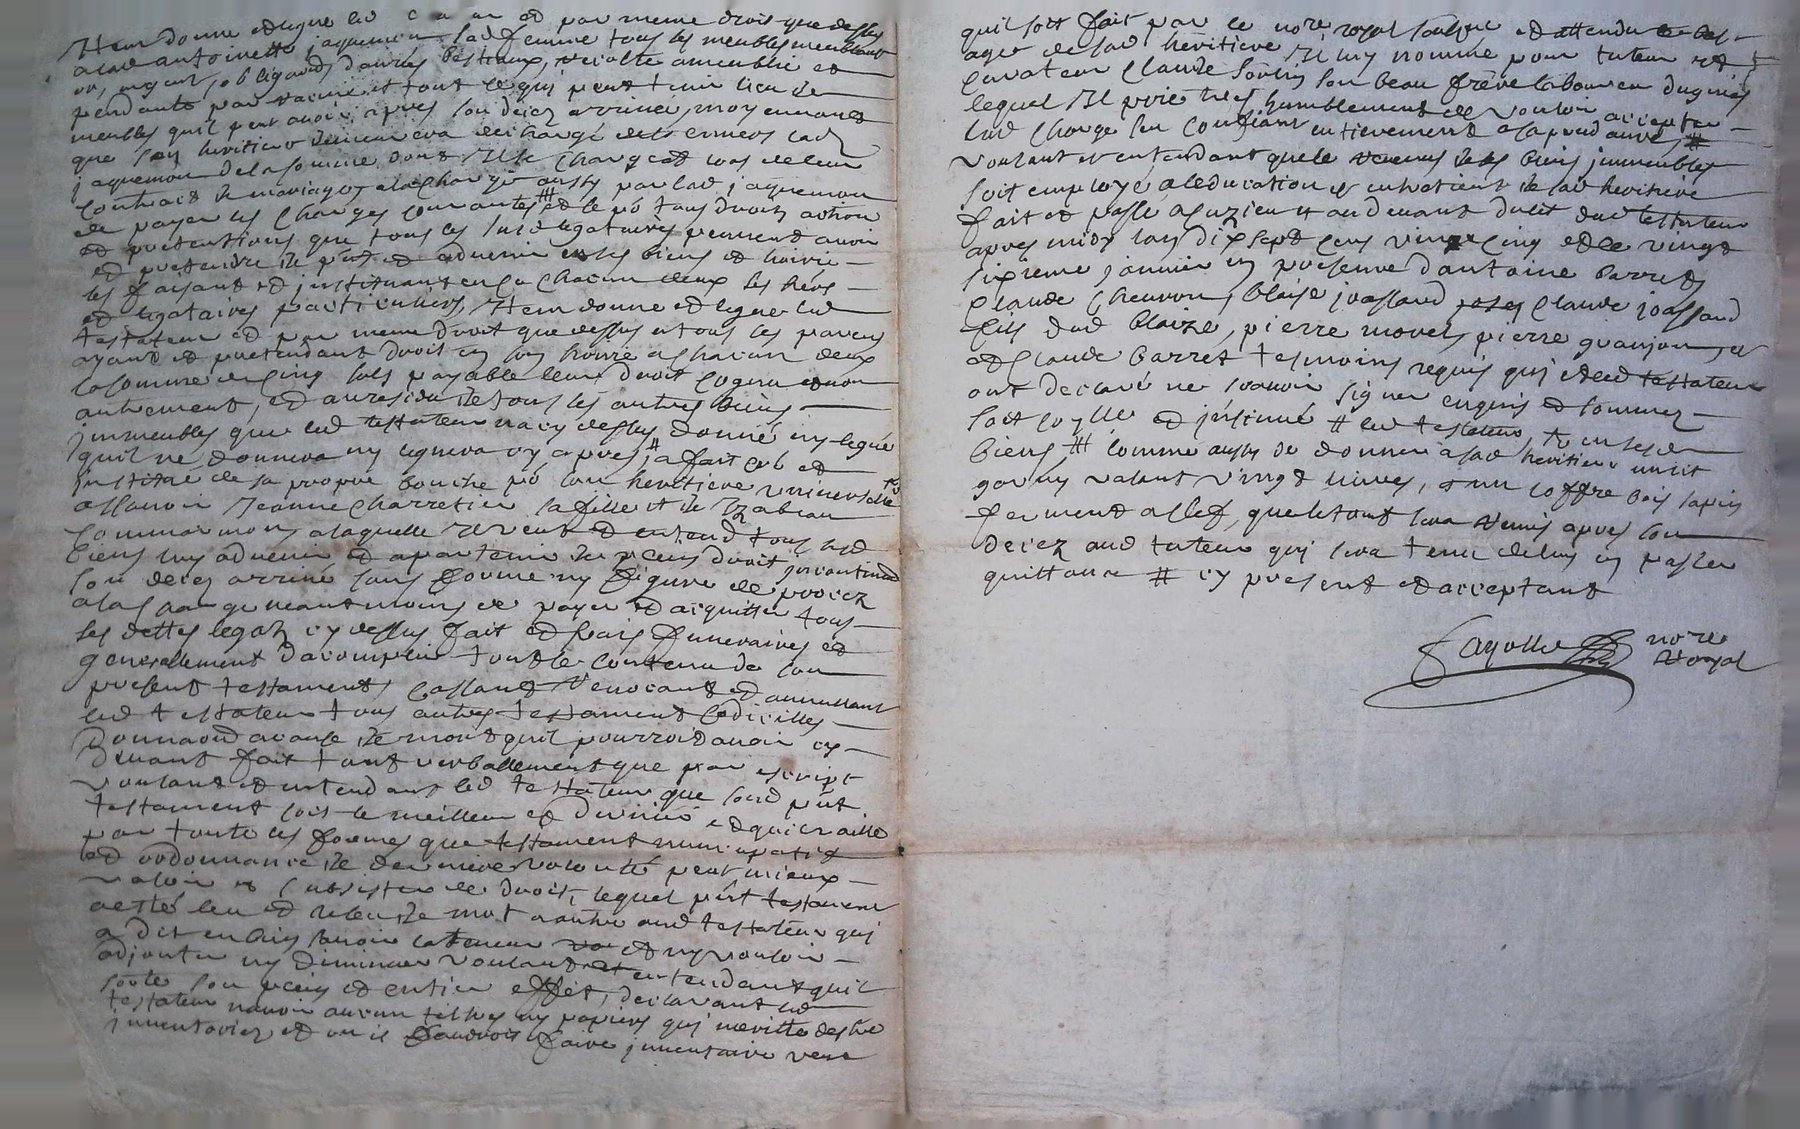 Item donne et legue led et par meme droit que dessus
a lad antoinette jaquemon sad femme tous les meubles meublant
or, argent, obligaōns, danrés bestiaux, recolte ameublie et
pendante par racine et tout ce qui peut tenir lieu de
meubles quil peut avoir apres son decez arrivee, moyennant
que son heritiere demeurera dechargé de envers lad
jaquemon de la somme dont il se chargeat lors de leur
contrait de mariage, a la charge aussy par lad jaquemon
de payer les charges courantes # et le pō tous droits action
et pretentions que tous les susd legataires peuvent avoir
et pretendre de pnt et advenir en ses biens et hoirie
les faisant et instituant en ce chacun deux ses hers
et legataires particuliers, Item donne et legue led
testateur et par meme droit que dessus a tous les parens
ayant et pretendant droit en son hoirie a chacun deux
la somme de cinq sols payable leur droit cognu et non
autrement, et au residu de tous les autres biens
immeubles que led testateur na cy dessus donné ny legué
quil ne donnera ny leguera cy apres # a fait cré et
institue de sa propre bouche pō son heritiere universelle
assavoir Jeanne Charretier sa fille et de Izabeau
a laquelle il veut et entend tous sesd
biens luy advenir et apartenir de plens droit incontinand
son decez arrivé sans forme ny figure de procez
a la charge neantmoins de payer et acquitter tous
ses dettes legatz cy dessus fait et frais funeraires et
generallement dacomplir tout le contenu de son
present testament, cassant revocant et annullant
led testateur tous autres testament codicilles
donnaōn a cause de mort quil pourroit avoir cy
devant fait tant verballement que par escript
voulant et entendant led testateur que sond pnt
testament soit le meilleur et dernier et qui vaille
par toute les forme que testament nuncupatif
et ordonnance de derniere volonté peut mieux
valoir et subsister de droit, lequel pnt testament
a esté leu et releu de mot a autre aud testateur qui
a dit en bien savoir la teneur et ny vouloir
adjouter ny diminuer voulant et entendant quil
sorte son plein et entier effet, declarant led
testateur navoir aucun titres ny papiers qui merittes destre
inventoriez et ou il faudroit faire inventaire veut
quil soit fait par le nore royal soubsne et attendu le bas
age de sad heritiere Il luy nomme pour tuteur et
curateur Claude son beau frere laboureur
lequel Il prie tres humblement de vouloir accepter
lad charge se confiant entierement a sa prud'
voulant et entendant que le revenus de ses biens immeubles
soit employé a leducation et entretient de sad heritiere
fait et passé a et au devant du lit dud testateur
apres midy lan dix sept cens vingt cinq et le vingt
sixieme janvier en presence dantoine Barret
Claude Cheuron, Blaise joassard Claude joassard
fils dud Blaize, pierre morel, pierre granjon et
et Claude Barret tesmoins requis qui et led testateur
ont declaré ne scavoir signer enquis et sommez
soit scellé et insinué # led testateur, # en sesd
biens # comme aussy de donner a sad heritiere un lit
garny valant vingt livres, et un coffre bois sapin
fermant a clef, que le tout sera remis apres son
decez aud tuteur qui sera tenu de luy en passer
quittance # cy present et acceptant
Fayolle nore
Royal